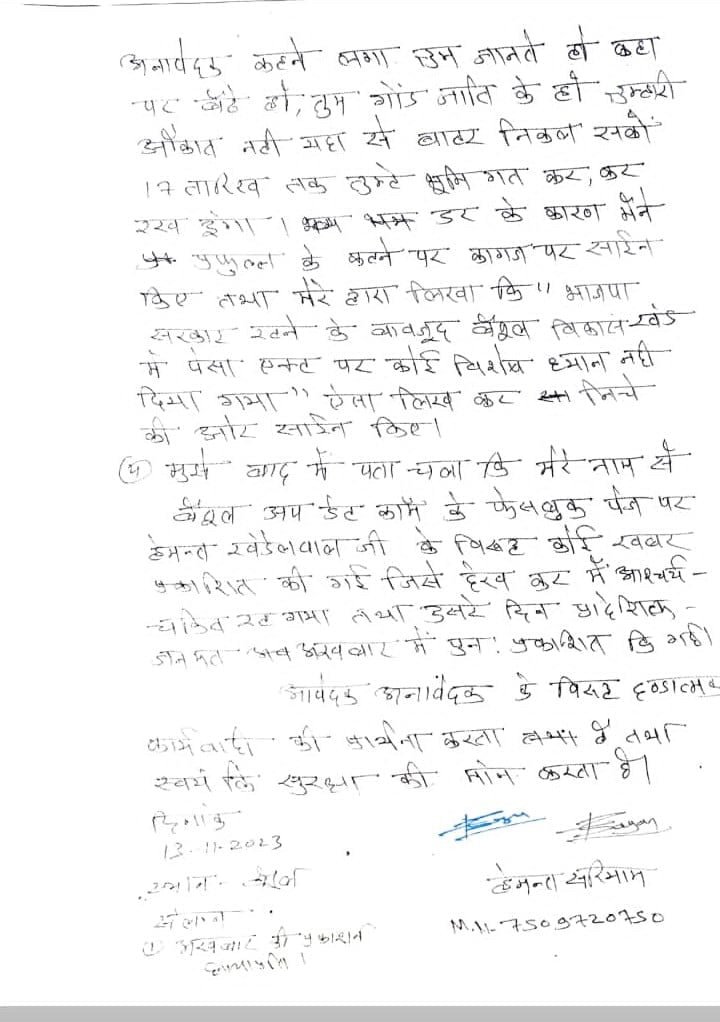 अनावेदक कहने लगा तुम जानते हो कहा
पर बैठे हो, तुम गोंड जाति के हो तुम्हारी
औकात नही यहा से बाहर निकल सको
17 तारिख तक तुम्हे भूमिगत कर, कर
रख दूंगा । डर के कारण मैंने
प्रफुल्ल के कहने पर कागज पर साईन
किए तथा मेरे द्वारा लिखा कि " भाजपा
सरकार रहने के बावजूद बैतूल विकासखंड
मे पेसा एक्ट पर कोई विशेष ध्यान नही
दिया गया" ऐसा लिख कर निचे
की ओर साईन किए।
मुझे बाद में पता चला कि मेरे नाम से
बैतूल अप डेट कॉम के फेसबुक पेज पर
हेमन्त खंडेलवाल जी के विरूद्ध कोई खबर
प्रकाशित की गई जिसे देख कर में आश्चर्य-
चकित रह गया तथा दुसरे दिन प्रादेशिक-
जनमत अखबार में पुन: प्रकाशित कि गई।
आवेदक अनावेदक के विरूद्ध दण्डात्मक
कार्यवाही की प्रार्थना करता है तथा
स्वयं कि सुरक्षा की मांग करता है।
दिनांक
13-11-2023
स्थान- बैतूल
हेमन्त सरियाम
M.N.-7509720750
संलग्न
① अखबार की प्रकाशन
छायाप्रति।